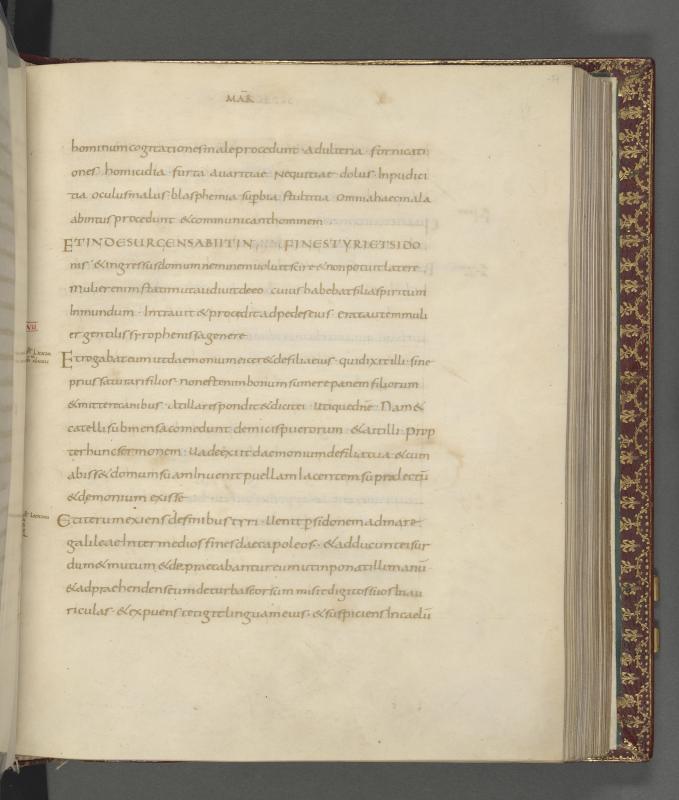 MAR̄
hominum cogitationes male procedunt · adulteria · fornicati
ones · homicidia · furta · avaritiae · Nequitiae · dolus · Inpudici
tia · oculus malus · blasphemia · sup̱bia · stultitia · Omnia haec mala
abintus procedunt · & communicant hominem
ET INDE SURGENS ABIIT IN FINES TYRI ET SIDO
nis · & ingressus domum neminem voluit scire & non potuit latere
mulier enim statim ut audivit deeo · cuius habebat filia spiritum
Inmundum · Intravit & procedit ad pedes eius · erat autem muli
er gentilis syrophenissa genere
VII
Et rogabat eum ut daemonium eicer& de filia eius · qui dixit illi · sine
prius saturari filios · non est enim bonum sumere panem filiorum
& mittere canibus · At illa respondit & dicit ei · Utique dn̄e · Nam &
catelli sub mensa comedunt de micis puerorum · & ait illi · prop
ter hunc sermonem · Uade exiit daemonium de filia tua · & cum
abiss& domum suam Invenit puellam Iacentem supra lectū
& demonium exisse
Et iterum exiens de finibus tyri · Uenit p̱ sidonem ad mare
galileae Inter medios fines decapoleos · & adducunt ei sur
dum & mutum & depraecabantur eum ut inponat illi manū
& adpraehendens eum de turba seorsum misit digitos suos In au
riculas · & expuens tetigit linguam eius · & suspiciens In caelū